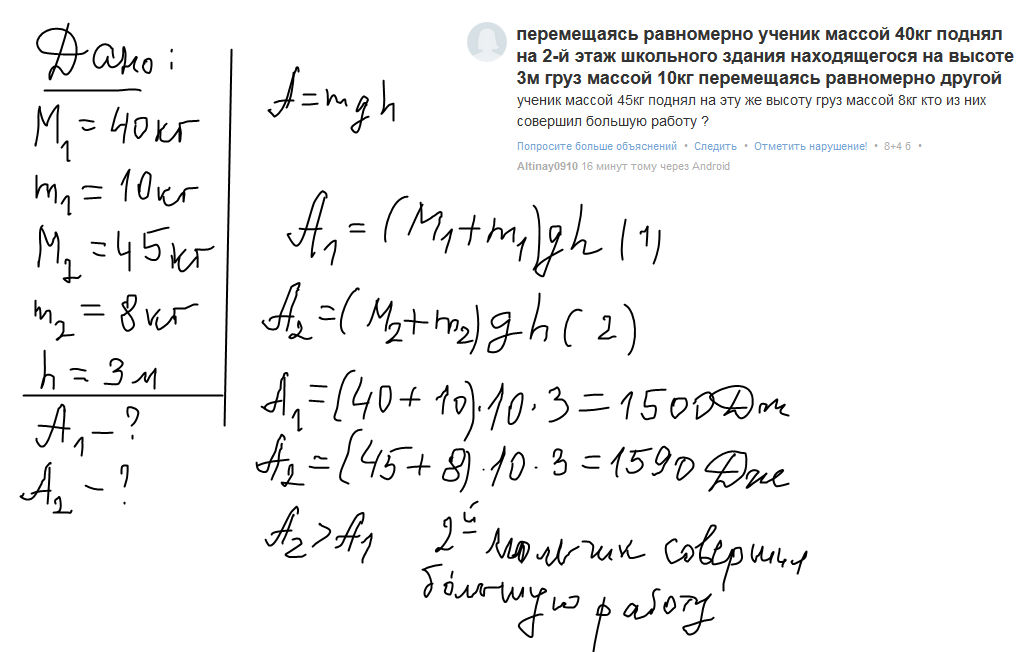 перемещаясь равномерно ученик массой 40кг поднял
на 2-й этаж школьного здания находящегося на высоте
3м груз массой 10кг перемещаясь равномерно другой
ученик массой 45кг поднял на эту же высоту груз массой 8кг кто из них
совершил большую работу ?
Попросите больше объяснений • Следить • Отметить нарушение! • 8+4 б •
Altinay0910 16 минут тому через Android
Дано:
M₁ = 40кг
m₁ = 10кг
M₂ = 45кг
m₂ = 8кг
h = 3м
A₁ – ?
A₂ – ?
A = mgh
A₁ = (M₁+m₁)gh (1)
A₂ = (M₂+m₂)gh (2)
A₁ = (40+10)·10·3 = 1500 Дж
A₂ = (45+8)·10·3 = 1590 Дж
A₂ > A₁ 2й мальчик совершил
бо́льшую работу